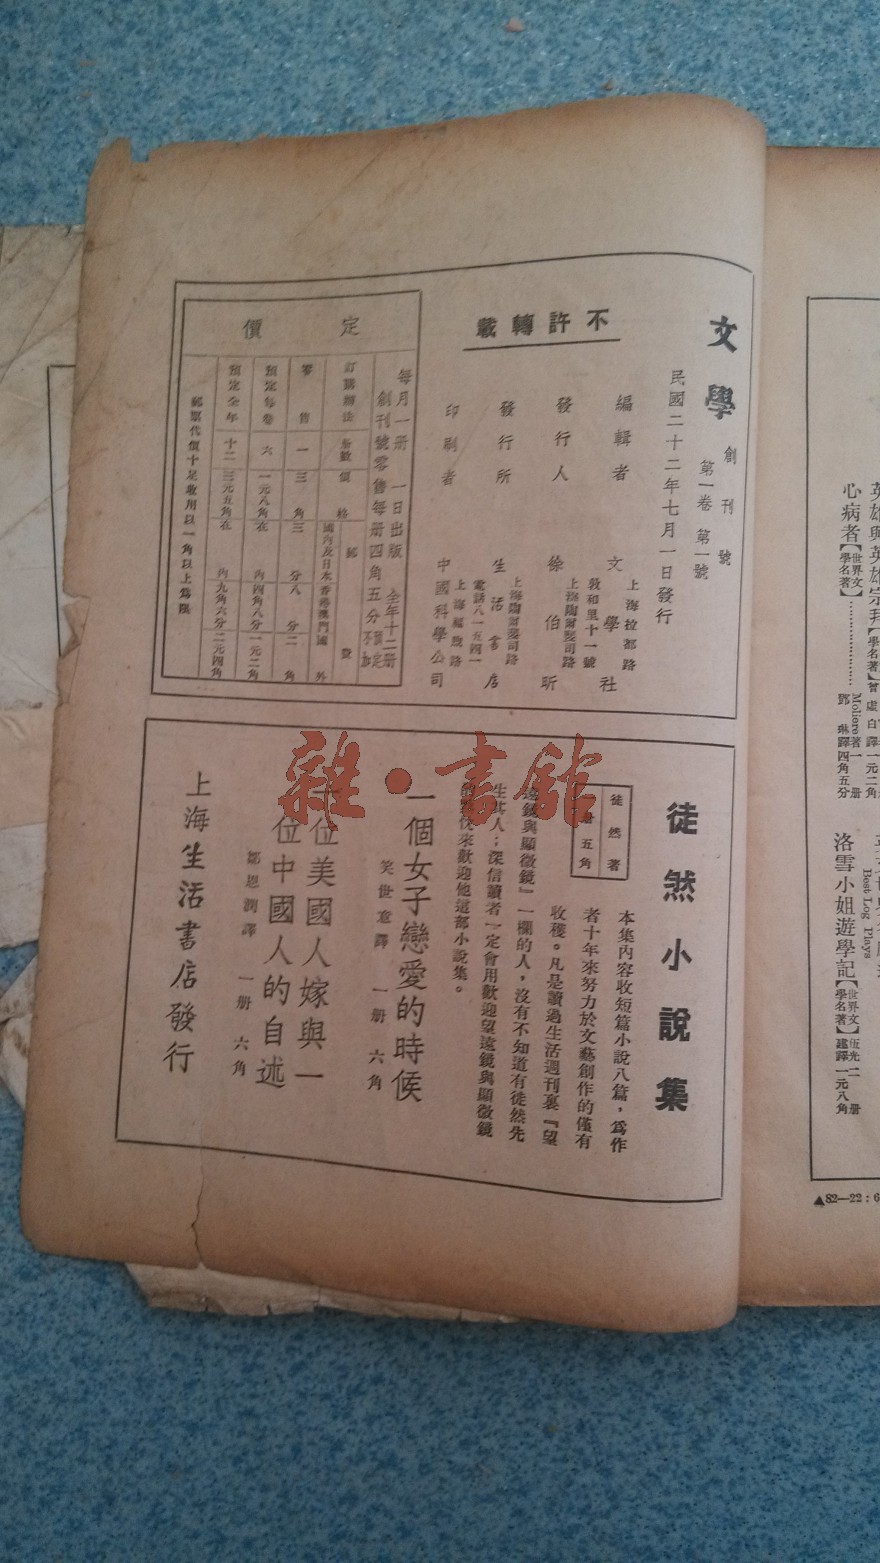 文學 創刊號
第一卷 第一號
民國二十二年七月一日發行
不許轉載
編輯者 文學社
上海拉都路
敦和里十一號
發行人 徐伯昕
上海陶爾斐司路
發行所 生活書店
上海陶爾斐司路
電話八一五四一
印刷者 中國科學公司
上海福煦路
定價
每月一册 一日出版 全年十二册
創刊號零售每册四角五分
訂購辦法 册數 價格 郵費
國內及日本 香港澳門 國外
零售 一 三角 三分 八分 二角
預定每卷 六 一元八角 在內 四角八分 一元二角
預定全年 十二 三元五角 在內 九角六分 二元四角
郵票代價十足收用以一角以上爲限
徒然小說集
徒然著
五角
本集內容收短篇小說八篇，爲作
者十年來努力於文藝創作的僅有
收穫。凡是讀過生活週刊裏『望
遠鏡與顯微鏡』一欄的人，沒有不知道有徒然先
生其人；深信讀者一定會用歡迎望遠鏡與顯微鏡
來歡迎他這部小說集。
一個女子戀愛的時候
笑世意譯 一册 六角
一位美國人嫁與一
位中國人的自述
鄒恩潤譯 一册 六角
上海生活書店發行
雜·書館
英雄與英雄宗拜【世界文學名著】曾虛白譯 一元二角
心病者【世界文學名著】 Moliere著 鄧琳譯 一册 四角五分
Best Log Plays
洛雪小姐遊學記【世界文學名著】伍光建譯 二册 一元八角
▲82—22:6